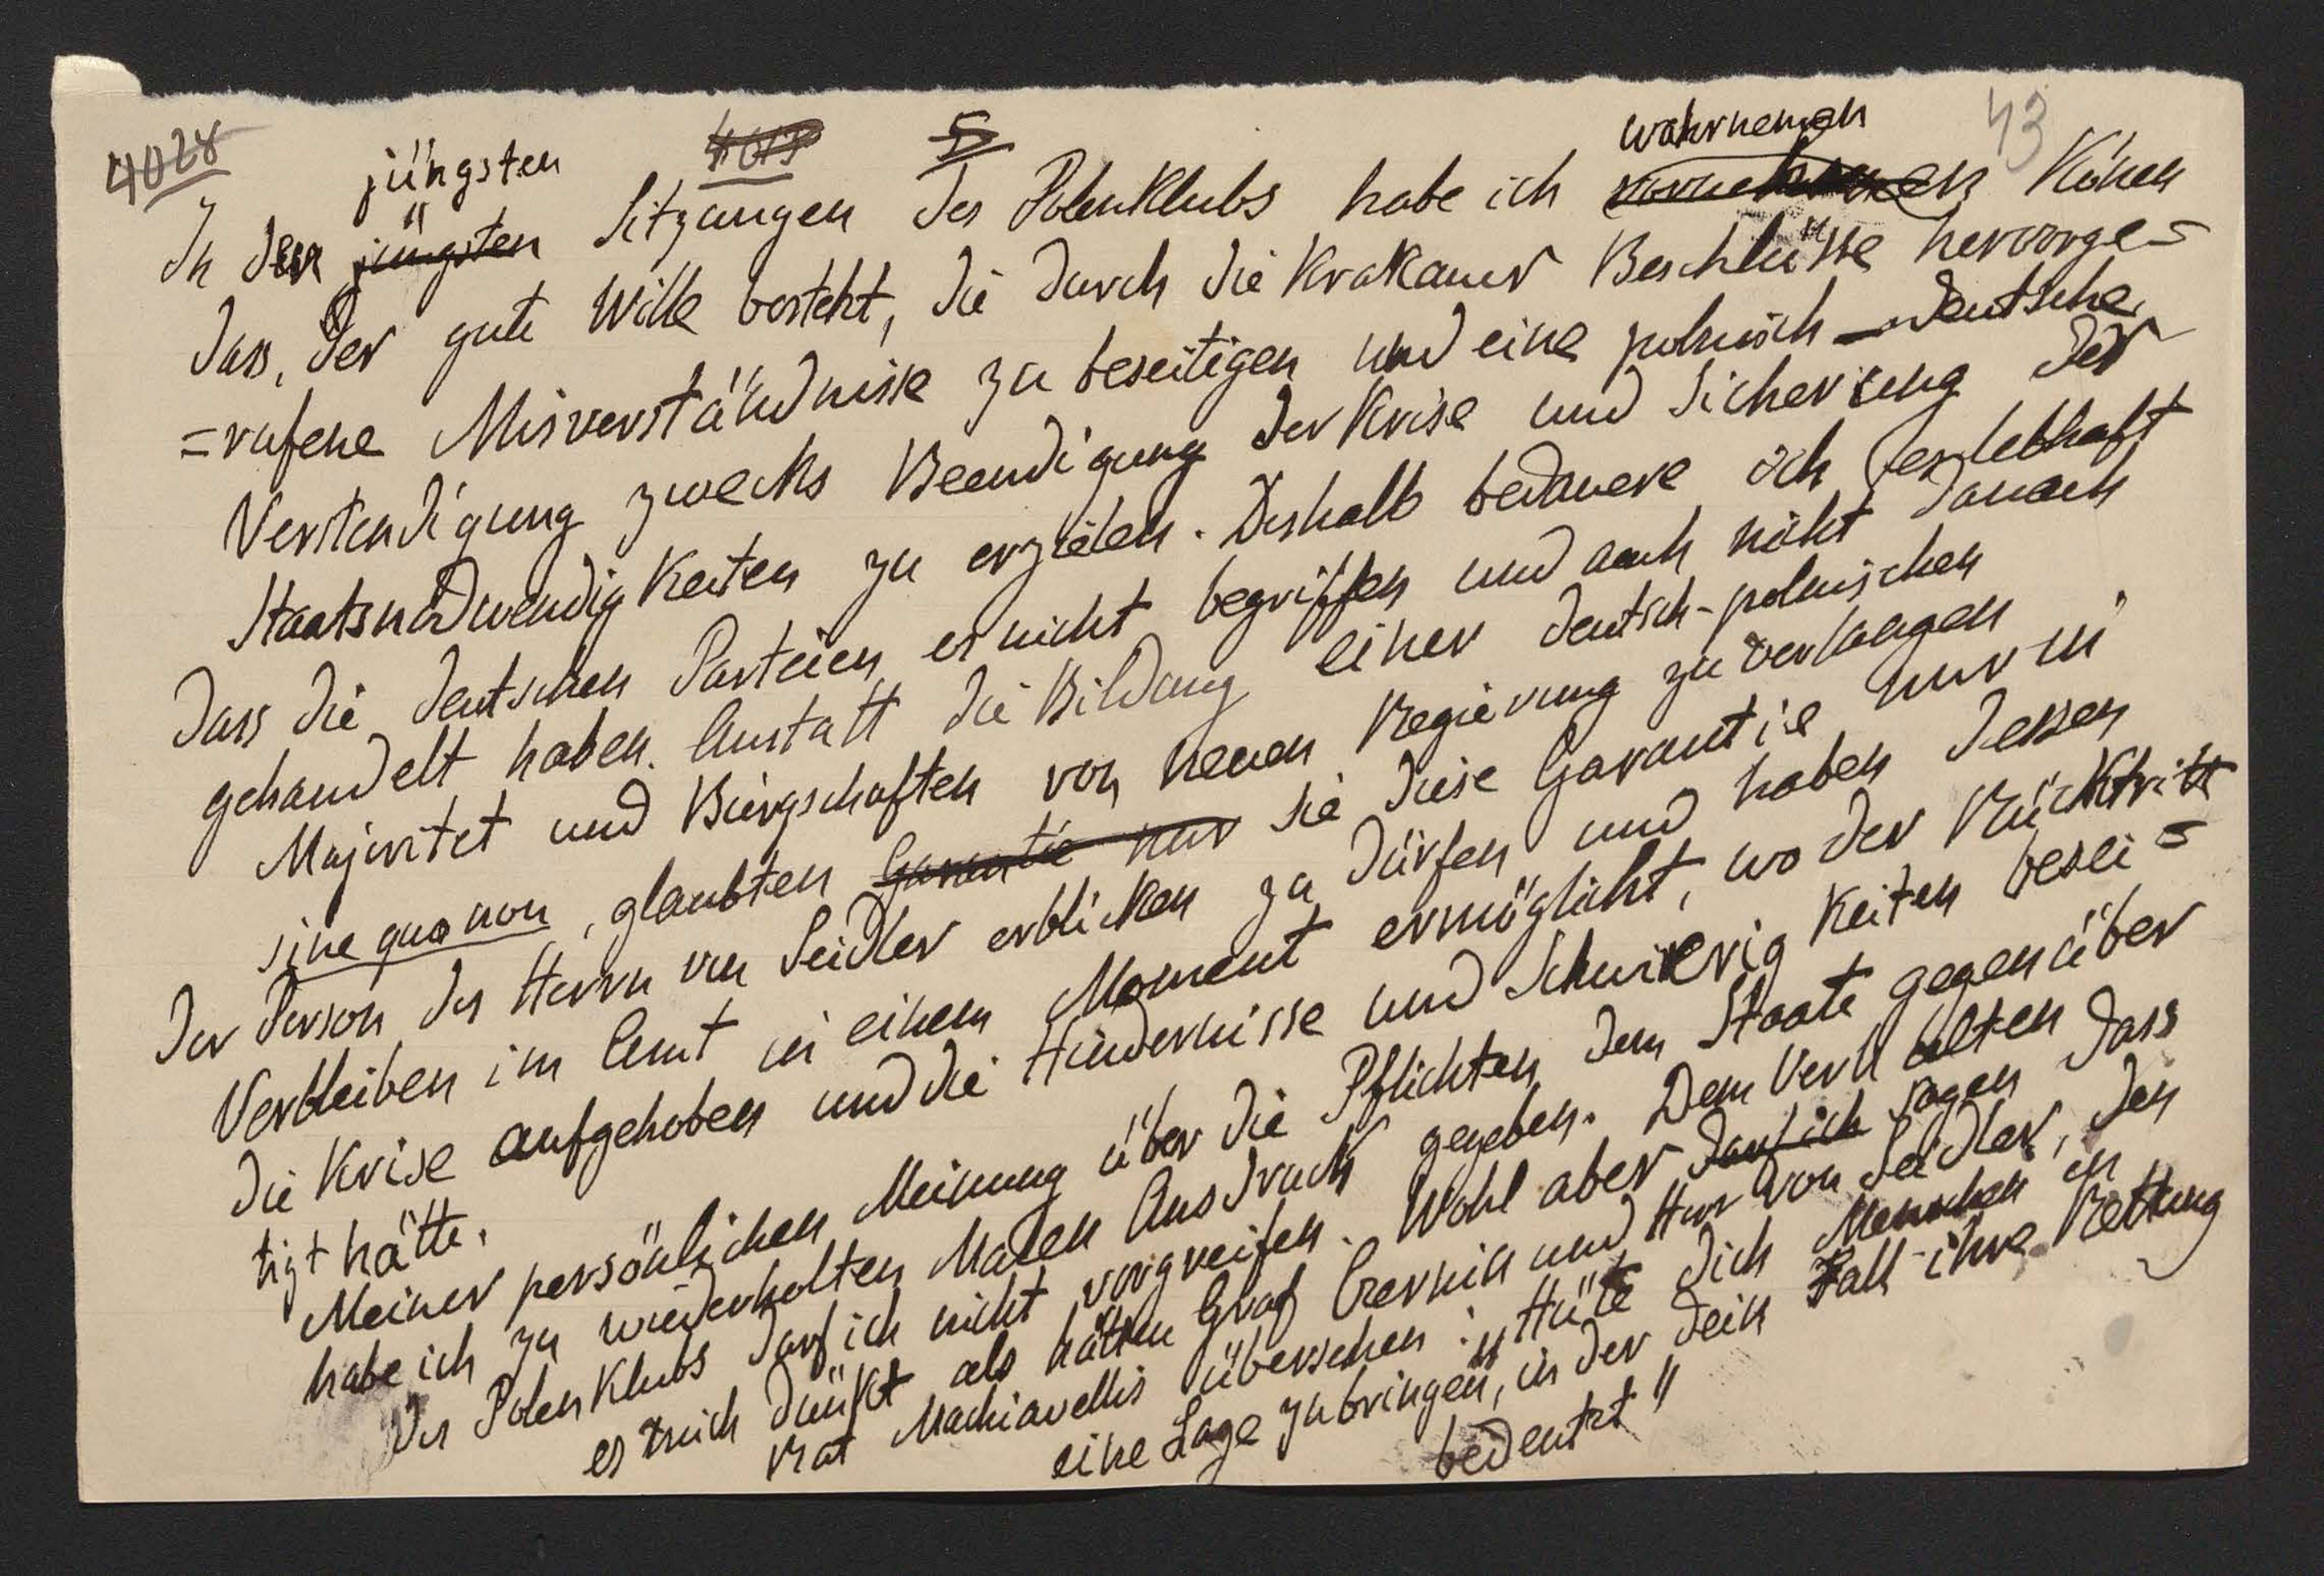 4028 4013 5 43
jüngsten wahrnemen
In den jüngsten Sitzungen des Polenklubs habe ich können
dass, der gute Wille besteht, die durch die Krakauer Beschlüsse hervorge=
=rufene Misverständnisse zu beseitigen und eine polnisch-deutsche
Verstendigung zwecks Beendigung der Krise und Sicherung der
Staatsnodwendigkeiten zu erzielen. Deshalb bedauere ich es lebhaft
dass die deutschen Parteien es nicht begriffen und auch nicht danach
gehandelt haben. Anstatt die Bildung einer deutsch-polnischen
Majoritet und Bürgschaften von neuen Regierung zu verlangen
sine qua non, glaubten Garantie nur sie diese Garantie nur in
der Person des Herrn von Seidler erblicken zu dürfen und haben dessen
Verbleiben im Amt in einem Moment ermöglicht, wo der Rücktritt
die Krise aufgehoben und die Hindernisse und Schwierigkeiten besei=
tigt hätte.
Meiner persönlichen Meinung über die Pflichten dem Staate gegenüber
habe ich zu wiederholten Malen Ausdruck gegeben. Dem Verhalten
des Polenklubs darf ich nicht vorgreifen. Wohl aber darf ich sagen dass
es mich dünkt als hätten Graf Czernin und Herr von Seidler, den
Rat Machiavellis übersehen: „Hüte dich Menschen in
eine Lage zu bringen, in der dein Fall ihre Rettung
bedeutet"